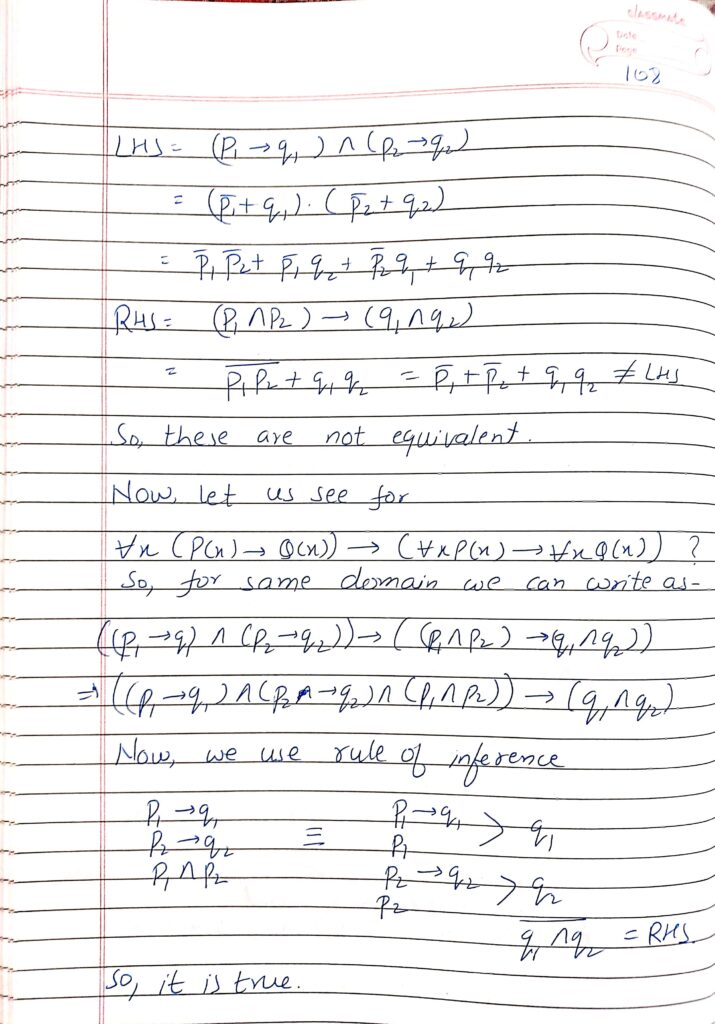 classmate
Date
Page
108
LHS = (P₁ → q₁) ∧ (P₂ → q₂)
= (P̄₁ + q₁) . (P̄₂ + q₂)
= P̄₁ P̄₂ + P̄₁ q₂ + P̄₂ q₁ + q₁ q₂
RHS = (P₁ ∧ P₂) → (q₁ ∧ q₂)
= \overline{P₁ P₂} + q₁ q₂ = P̄₁ + P̄₂ + q₁ q₂ ≠ LHS
So, these are not equivalent.
Now, let us see for
∀x (P(x) → Q(x)) → (∀x P(x) → ∀x Q(x)) ?
So, for same domain we can write as -
((P₁ → q₁) ∧ (P₂ → q₂)) → ((P₁ ∧ P₂) → q₁ ∧ q₂))
⇒ ((P₁ → q₁) ∧ (P₂ → q₂) ∧ (P₁ ∧ P₂)) → (q₁ ∧ q₂)
Now, we use rule of inference
P₁ → q₁
P₂ → q₂
P₁ ∧ P₂
≡
P₁ → q₁
P₁
> q₁
P₂ → q₂
P₂
> q₂
q₁ ∧ q₂ = RHS.
So, it is true.